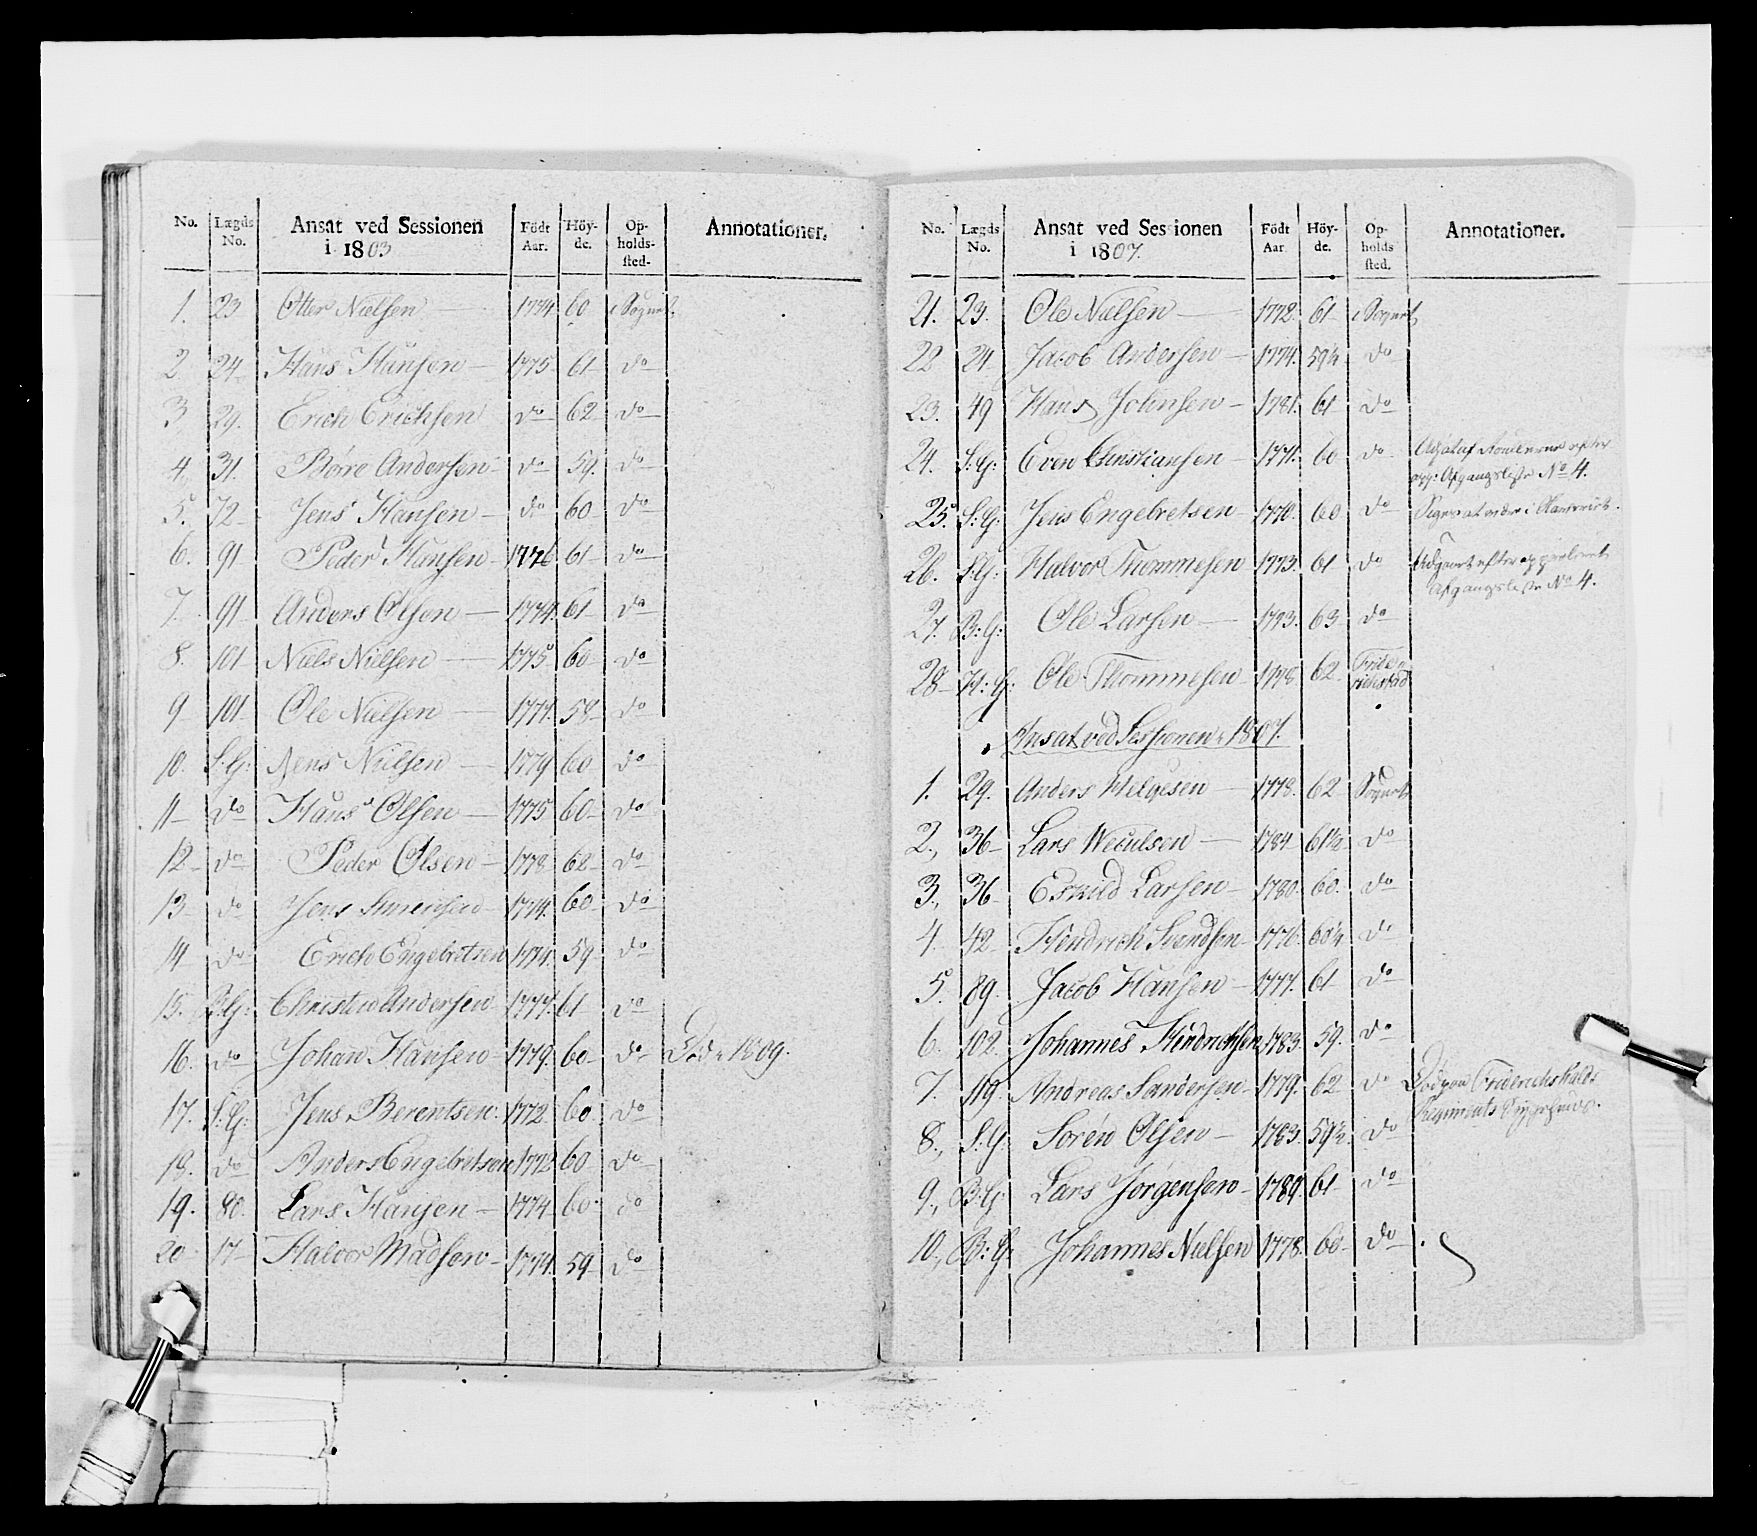 No. Lægds No. Ansat ved Sessionen i 1803 Födt Aar. Höy-de. Op-holds-sted. Annotationer.
1. 23 Otter Nielsen 1774 60 i Sognet
2 24 Hans Hansen 1775 61 do
3 29. Erich Erichsen do 62 do
4 31. Börre Andersen do 59. do
5. 72 Jens Hansen do 60 do
6. 91 Peder Hansen 1776 61 do
7. 91 Anders Olsen 1774. 61 do
8. 101 Niels Nielsen 1775 60 do
9 101 Ole Nielsen 1777. 58 do
10. S:G: Jens Nielsen 1779 60 do
11 do Hans Olsen 1775 60 do
12 do Peder Olsen 1778 62 do
13 do Jens 1774. 60 do
14 do Erich Engebretsen 1774. 59 do
15. S:G: Christen Andersen 1777. 61 do
16. do Johan Hansen 1779. 60 do Död 1809.
17. S:G: Jens Berentsen 1772 60 do
18. do Anders Engebretsen 1772 60 do
19. 80. Lars Hansen 1774 60 do
20 17 Halvor Madsen 1774. 59 do
No. Lægds No. Ansat ved Sessionen i 1807. Födt Aar Höy-de. Op-holds sted. Annotationer.
21. 23. Ole Nielsen 1772. 61 i Sognet
22 24 Jacob Andersen 1774. 59½ do
23. 49 Hans Johnsen 1781. 61 do
24. S:G: Even Christiansen 1771. 60 do
Afgangsliste No 4.
25. S:G: Jens Engebretsen 1770. 60 do
26. S:G: Halvor Thommesen 1773. 61 do Udgaaet efter
Afgangsliste No 4.
27. B:G: Ole Larsen 1773. 63 do
28 H:G: Ole Thommesen 1778 62 Fride-richstad
Ansat ved Sessionen i 1807.
1. 29. Anders Helgesen 1778. 62 Sognet
2., 36 Lars 1784 61½ do
3., 36 Eskild Larsen 1780. 60. do
4 42 Hendrich Svendsen 1776. 60¼ do
5. 89. Jacob Hansen 1777. 61 do
6. 102. Johannes Hendrichsen 1783. 59. do
7. 119. Andreas Sandersen 1779. 62 do Död paa Friderichshalds
Regiments Sygehuus.
8., S.G. Sören Olsen 1783. 59½ do
9., B:G: Lars Jörgensen 1789. 61 do
10., B:G: Johannes Nielsen 1778. 60 do